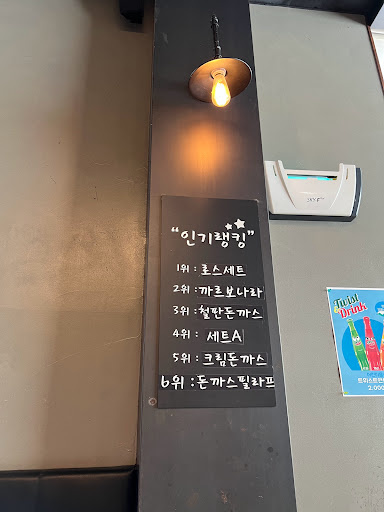 "인기랭킹"
1위 : 로스세트
2위 : 까르보나라
3위 : 철판돈까스
4위 : 세트A
5위 : 크림돈까스
6위 : 돈까스필라프
Twist
Drink
2,000